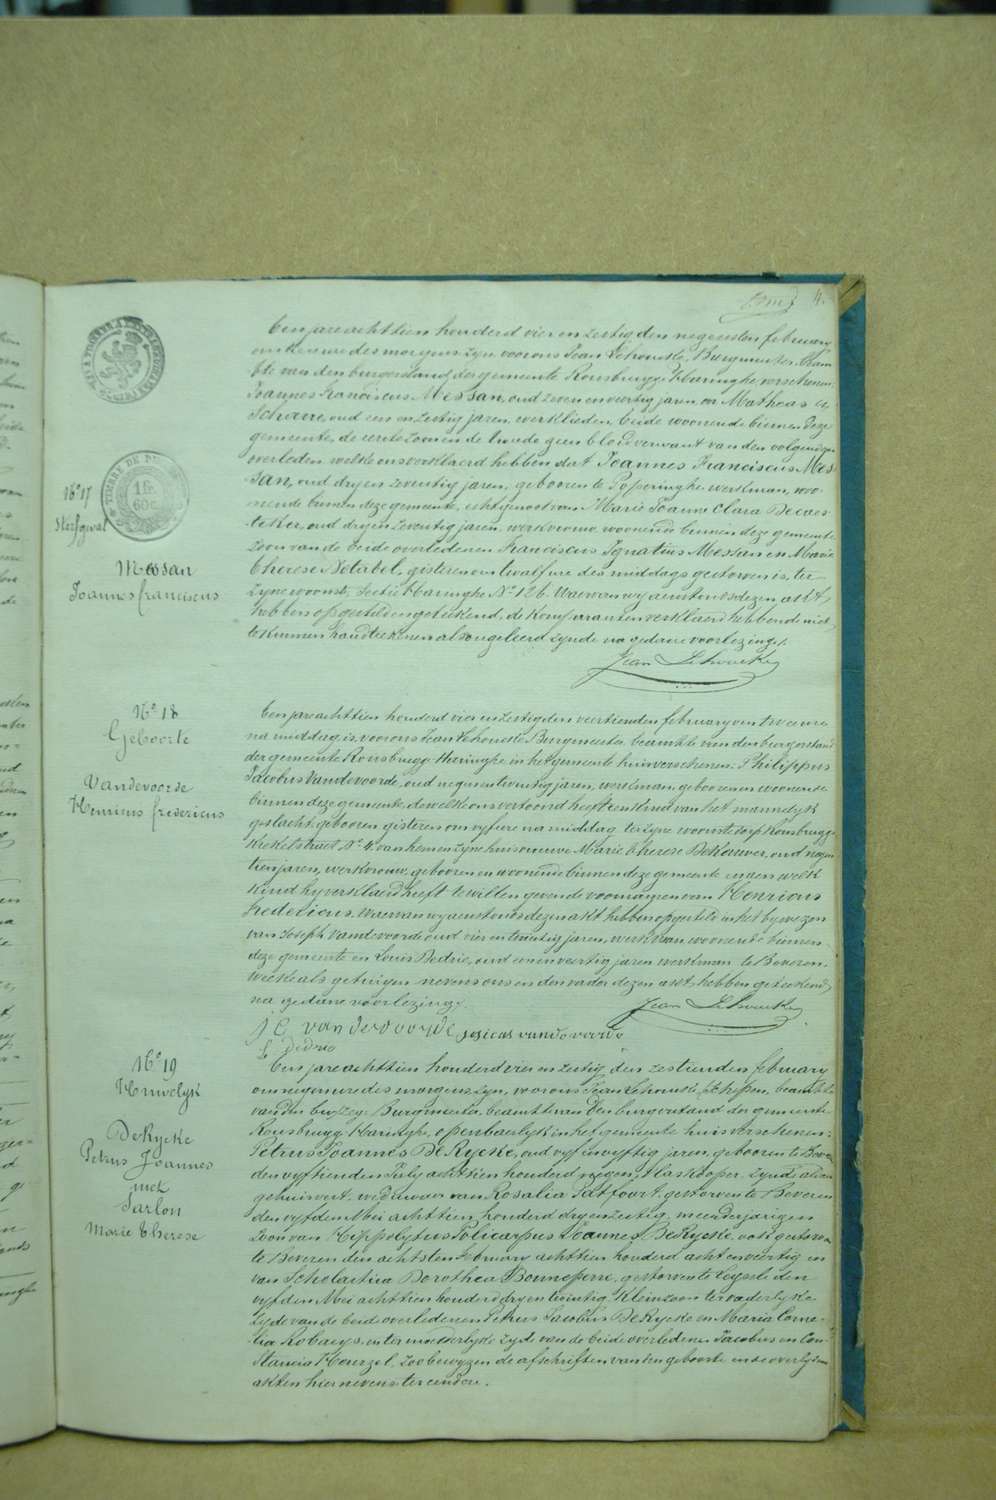 4.
N° 17
Sterfgeval
Messan
Joannes franciscus
TIMBRE DE
1 fr.
60 c.
Een jare achttien honderd vier en zestig den negensten february
om tien ure des morgens zyn voor ons Jean Lehoucke, Burgmeester, beam
bte van den burgerstand der gemeente Rousbrugge Haringhe verschenen
Joannes Franciscus Messan, oud zeven en veertig jaren en Matheus
oud een en zestig jaren, werklieden, beide woonende binnen deze
gemeente, de eerste zoon en de tweede geen bloedverwant van den volgenden
overleden welke ons verklaerd hebben dat Joannes Franciscus Mes
san, oud dry en zeventig jaren, geboren te Poperinghe werkman, woo-
nende binnen deze gemeente, echtgenoot van Marie Joanne Clara Decoes
teker, oud dry en zeventig jaren, werkvrouw, woonende binnen deze gemeente
zoon van de beide overledenen Franciscus Ignatius Messan en Marie
Therese Notabel, gisteren om twalf ure des middags gestorven is, ter
zyne woonst, Sectie Haringhe N° 126. Waervan wy aenstonds dezen akt
hebben opgesteld en geteekend, de komparanten verklaerd hebbende niet
te kunnen handteekenen als ongeleerd zynde na gedane voorlezing.
Jean Lehoucke
N° 18
Geboorte
Vandevoorde
Henricus fredericus
Een jare achttien honderd vier en zestig den veertienden february om twee ure
na middag, is voor ons Jean Lehoucke Burgmeester beambte van den burgerstand
der gemeente Rousbrugge Haringhe in het gemeente huis verschenen: Philippus
Jacobus Vandevoorde, oud negen en twintig jaren, werkman, geboren en woonende
binnen deze gemeente, dewelke ons vertoond heeft een kind van het mannelyk
geslacht, geboren gisteren om vyf ure na middag, ter zyne woonste dorp Rousbrugge
Krekelstraet, N° 4, van hem en zyne huisvrouwe Marie Therese DeKeuwer, oud negen
tien jaren, werkvrouw, geboren en woonende binnen deze gemeente en aen welk
kind hy verklaerd heeft te willen geven de voornamen van Henricus
Fredericus. Waervan wy aenstonds dezen akt hebben opgesteld in het bywezen
van Joseph Vandevoorde oud vier en twintig jaren, werkman woonende binnen
deze gemeente en Louis Dedrie, oud een en veertig jaren werkman te Beveren,
welke als getuigen nevens ons en den vader dezen akt hebben geteekend,
na gedane voorlezing.
Jean Lehoucke
vandevoorde
L dedrie
N° 19
Huwelyk
DeRycke
Petrus Joannes
met
Sarlon
Marie Therese
Een jare achttien honderd vier en zestig, den zestienden february
om negen ure des morgens zyn, voor ons Jean Lehoucke Schepen, beambte
van den by zyn Burgmeester beambte van den burgerstand der gemeente
Rousbrugge Haringhe, openbaerlyk in het gemeente huis verschenen:
Petrus Joannes DeRycke, oud vyf en vyftig jaren, geboren te Beve
den vyftienden July achttien honderd negen, vlaskooper, zynde alvoor
gehuisvest, weduwaer van Rosalia Patfoort, gestorven te Beveren
den vyfden Mei achttien honderd dry en zestig, meerderjarigen
zoon van Hippolytus Policarpus Joannes DeRycke, ook gestorven
te Beveren den achtsten february achttien honderd acht en veertig en
van Scholastica Dorothea Bonnefierre, gestorven te Leysele den
vyfden Mei achttien honderd dry en twintig. Kleinzoon ter vaderlyke
zyde van de beide overledenen Petrus Jacobus DeRycke en Maria Corne-
lia Robaeys, en ter moederlyke zyde van de beide overledenen Jacobus en Con-
stancia Heurzel, zoo bewyzen de afschriften van hen geboorte en de overlydens
akten hier nevens ter eendere.